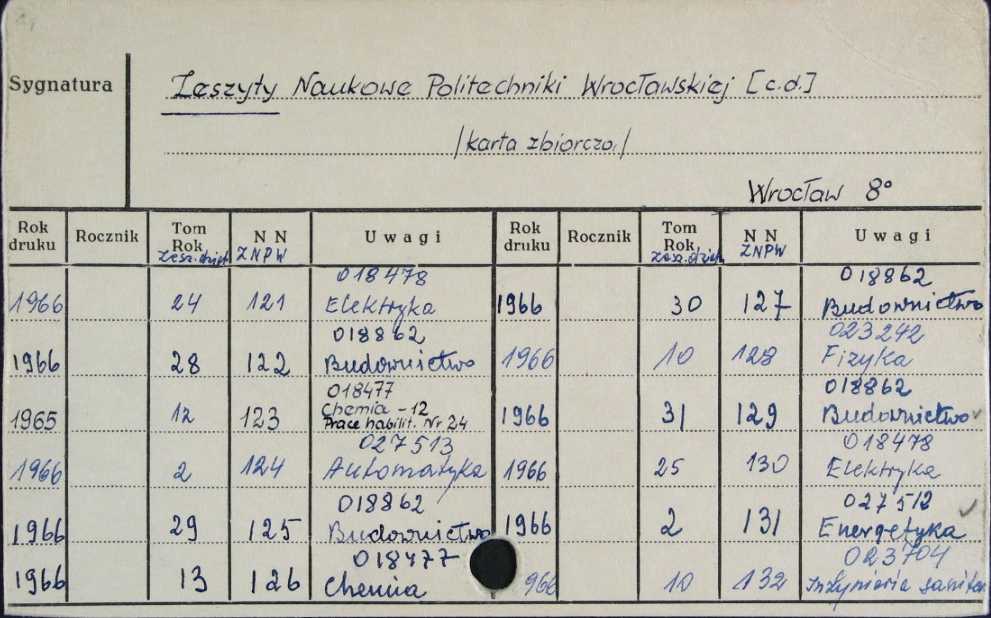 Sygnatura
Zeszyty Naukowe Politechniki Wrocławskiej [c.d.]
/karta zbiorcza/
Wrocław 8°
Rok druku Rocznik Tom Rok Zesz. dzieł. N N ZNPW Uwagi Rok druku Rocznik Tom Rok Zesz. dzieł. N N ZNPW Uwagi
018478
1966 24 121 Elektryka
018862
1966 28 122 Budownictwo
018477
1965 12 123 Chemia - 12
Prace habilit. Nr 24
027513
1966 2 124 Automatyka
018862
1966 29 125 Budownictwo
018477
1966 13 126 Chemia
018862
1966 30 127 Budownictwo
023242
1966 10 128 Fizyka
018862
1966 31 129 Budownictwo
018478
1966 25 130 Elektryka
027512
1966 2 131 Energetyka
023704
966 10 132 Inżynieria sanitar